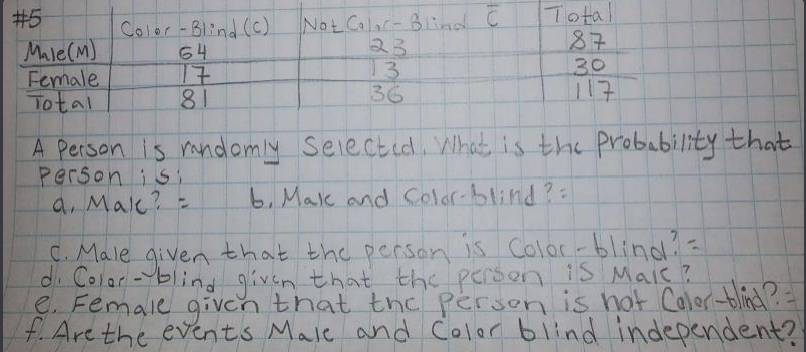 #5 Color-Blind (C) Not Color-Blind C̅ Total
Male(M) 64 23 87
Female 17 13 30
Total 81 36 117
A Person is randomly Selected. What is the Probability that
Person is:
a. Male? = b. Male and Color-blind? =
C. Male given that the person is Color-blind? =
d. Color-blind given that the person is Male?
e. Female given that the Person is not Color-blind? =
f. Are the events Male and Color blind independent?